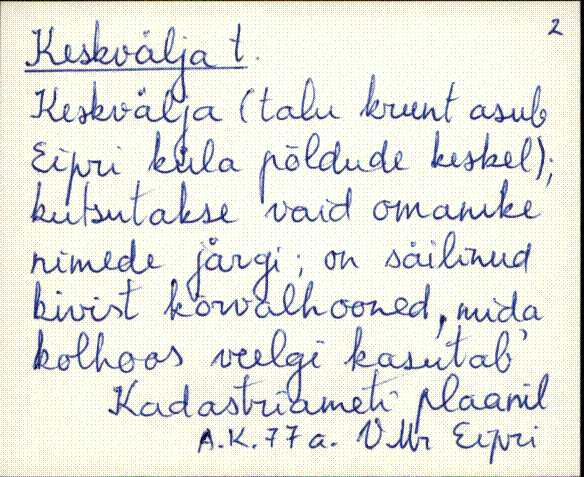 2
Keskvälja t.
Keskvälja (talu krunt asub
Eipri küla põldude keskel);
kutsutakse vaid omanike
nimede järgi; on säilinud
kivist kõrvalhooned, mida
kolhoos veelgi kasutab
Kadastriameti plaanil
A.K. 77 a. VMr Eipri